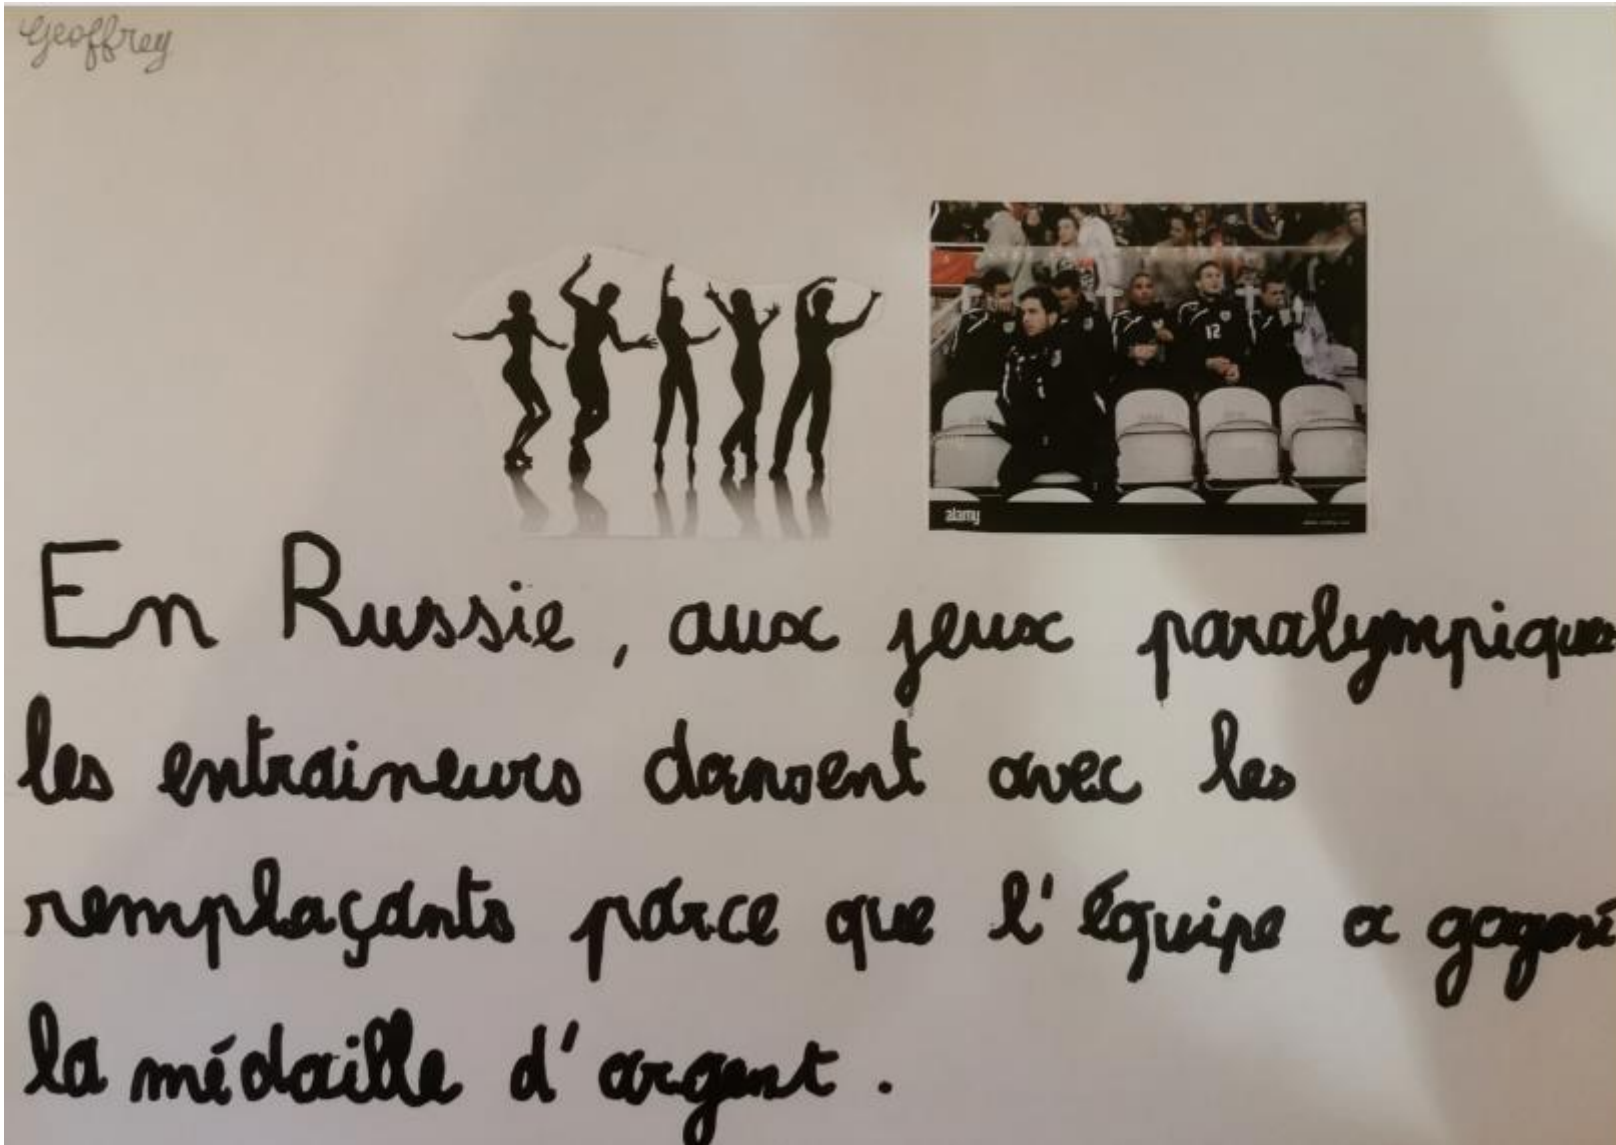 Geoffrey
12
alamy
En Russie, aux jeux paralympiques
les entraineurs dansent avec les
remplaçants parce que l'équipe a gagné
la médaille d'argent.